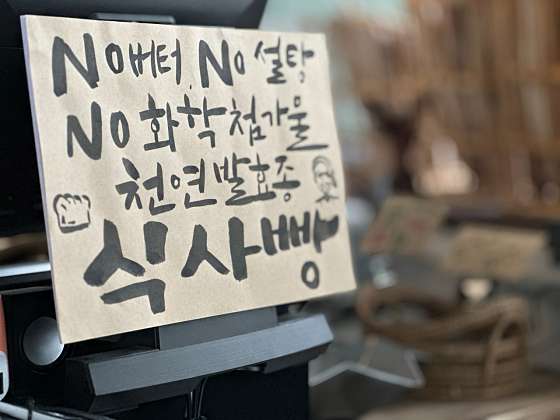 No버터, No설탕
No화학첨가물
천연발효종
식사빵